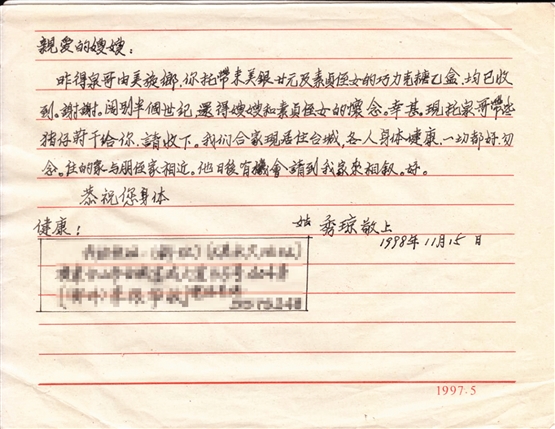 親愛的嫂嫂:
昨得泉哥由美旋鄉,你托帶来美銀廿元及素貞侄女的巧力克糖乙盒,均已收
到。謝謝。闊别半個世紀,還得嫂嫂和素貞侄女的懷念。幸甚,現托泉哥帶些
猪仔荮干给你,請收下。我们合家現居住台城,各人身体健康,一切都好,勿
念。住的家与朋侄家相近。他日後有機會請到我家來相叙。好。
恭祝您身体
健康;
姑 秀琼敬上
1998年11月15日
1997.5